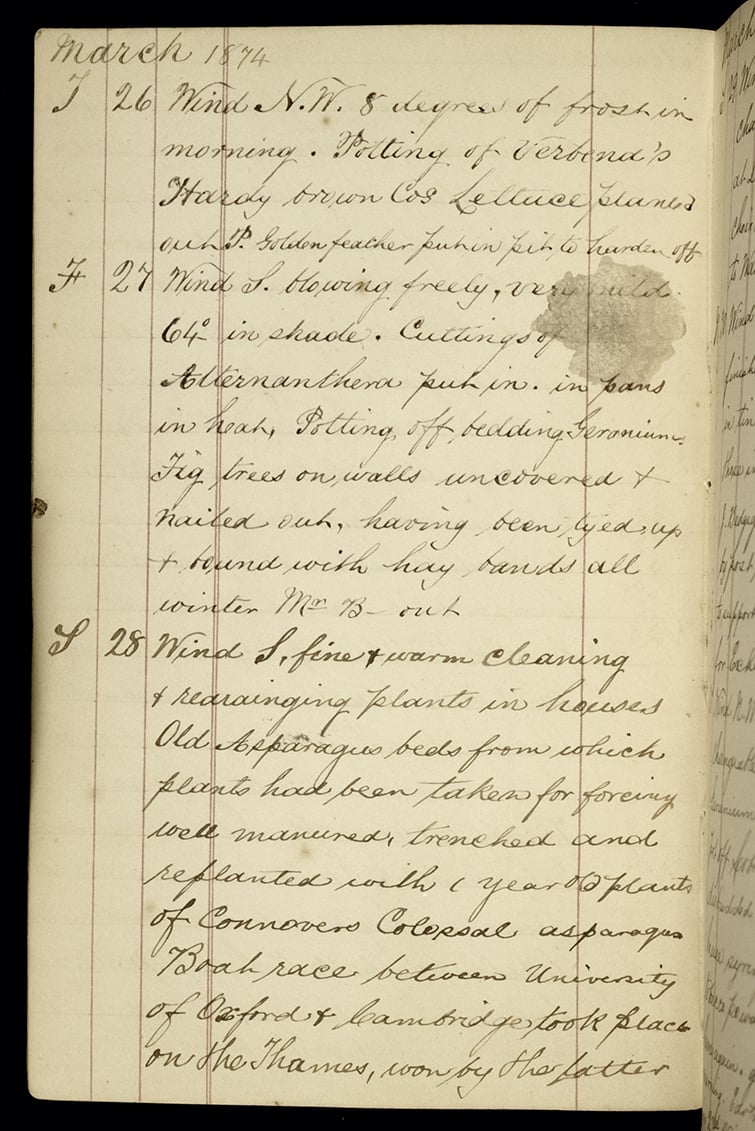 March 1874
T 26 Wind N.W. 8 degrees of frost in
morning. Potting of Verbena's
Hardy brown Cos Lettuce planted
out P. Golden feather put in pit to harden off
F 27 Wind S. blowing freely, very mild
64° in shade. Cuttings of
Alternanthera put in. in pans
in heat, Potting off bedding Geraniums
Fig trees on walls uncovered +
nailed out, having been tyed up
+ bound with hay bands all
winter Mr B- out
S 28 Wind S, fine + warm cleaning
+ rearainging plants in houses
Old Asparagus beds from which
plants had been taken for forcing
well manured, trenched and
replanted with 1 year old plants
of Connovers Colossal asparagus
Boat race between University
of Oxford + Cambridge took place
on the Thames, won by the latter